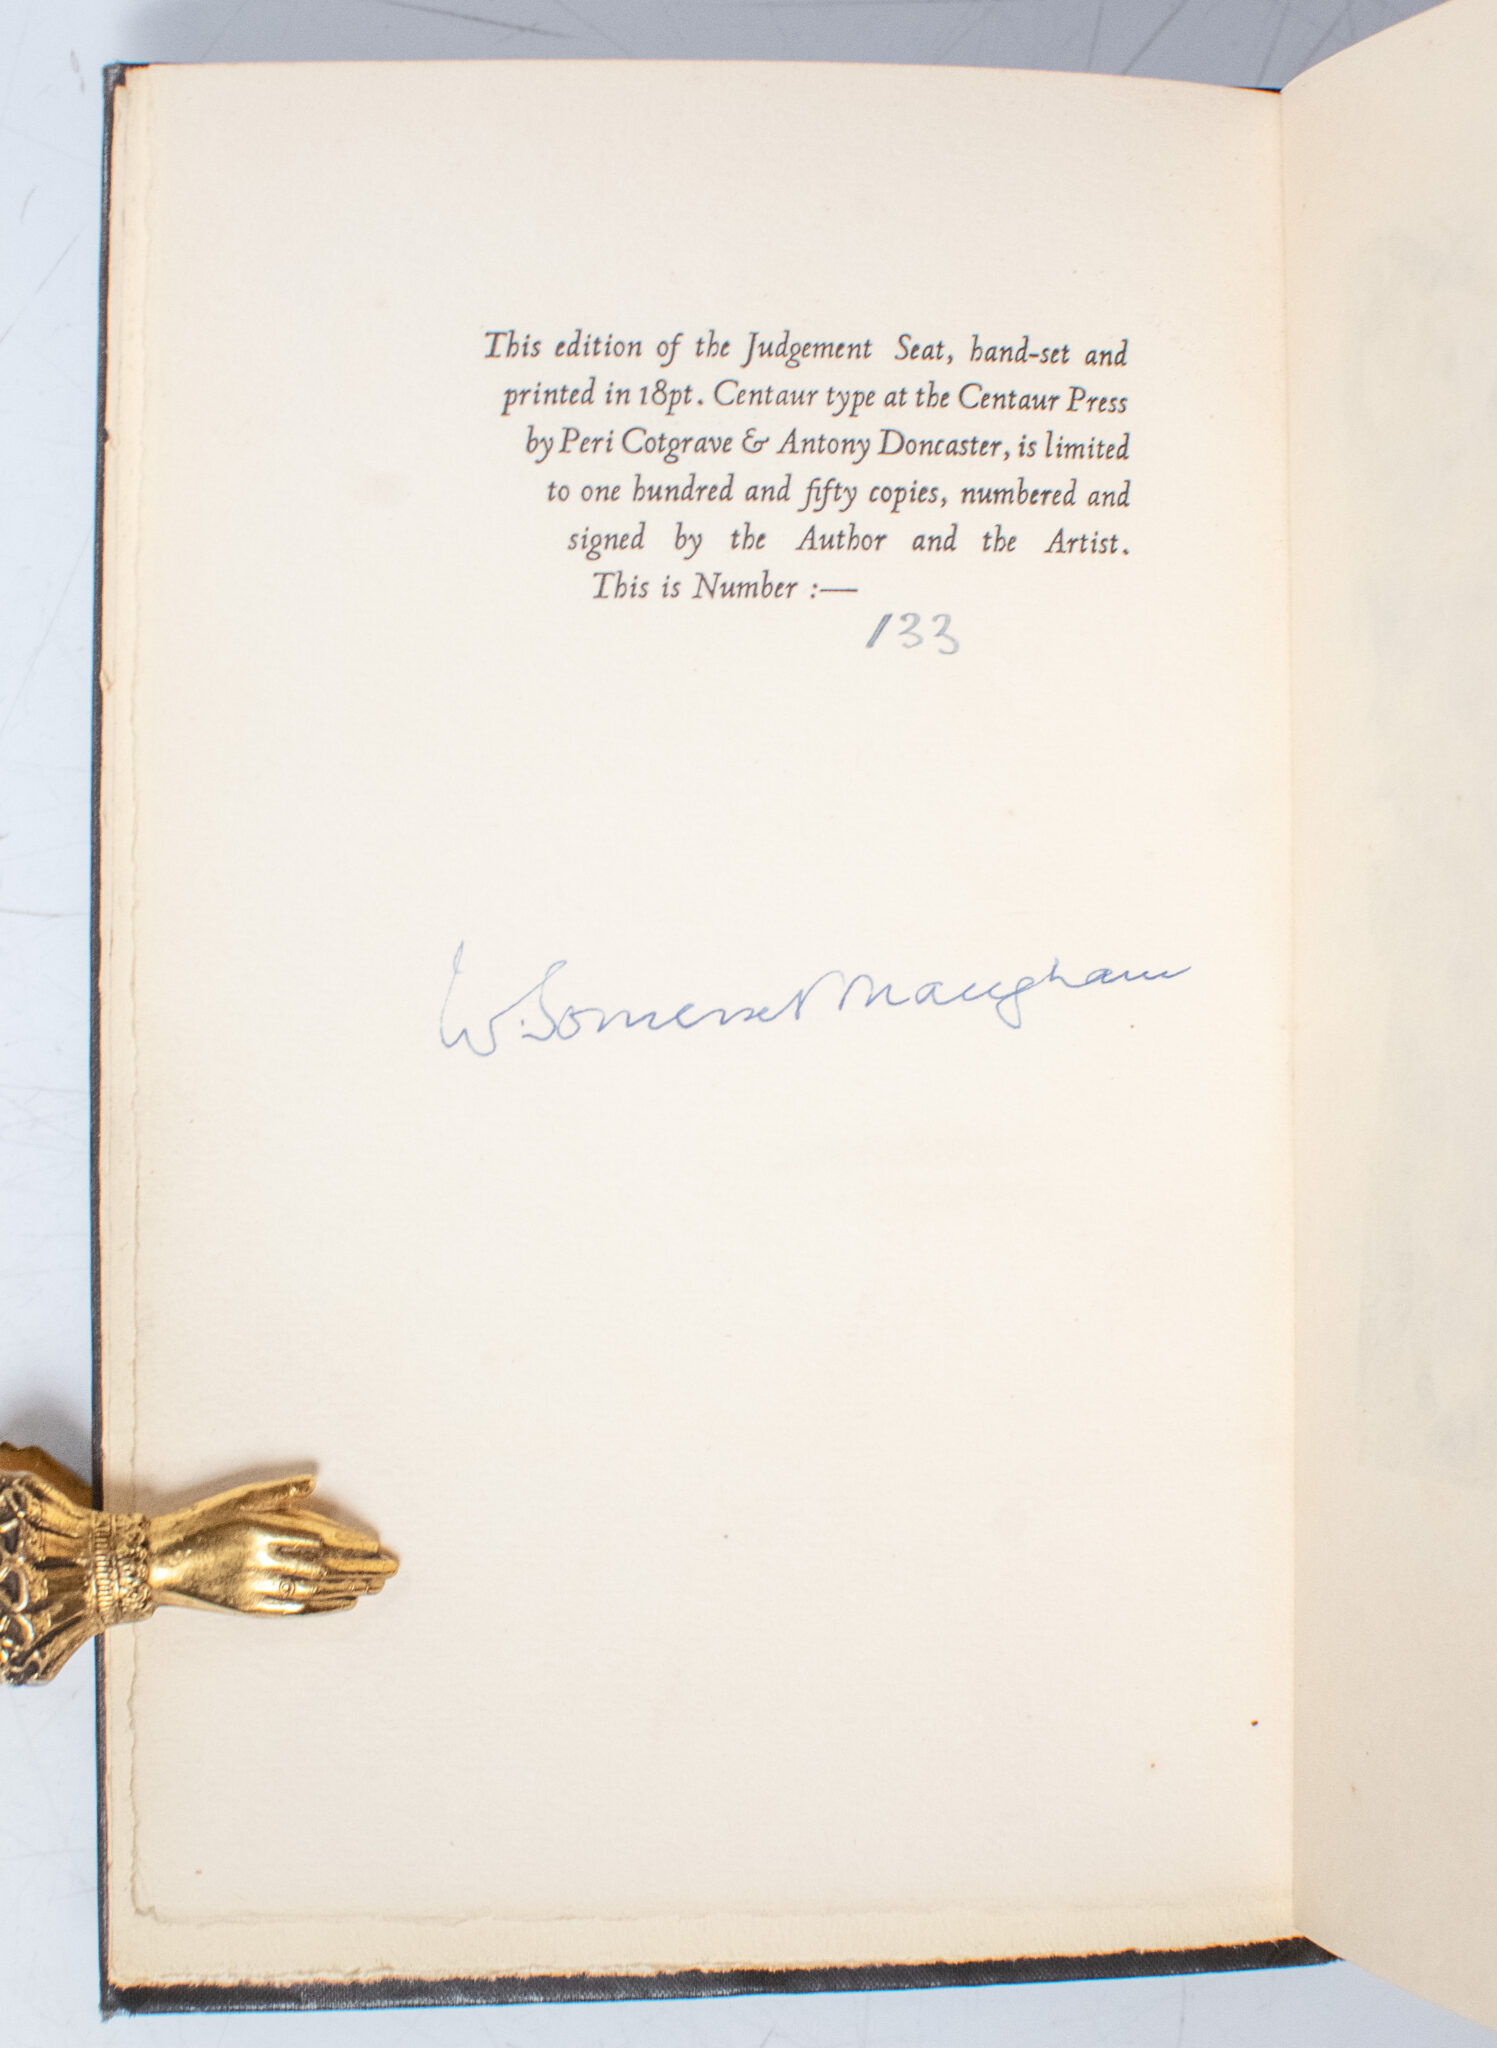 This edition of the Judgement Seat, hand-set and
printed in 18pt. Centaur type at the Centaur Press
by Peri Cotgrave & Antony Doncaster, is limited
to one hundred and fifty copies, numbered and
signed by the Author and the Artist.
This is Number :—
133
W. Somerset Maugham